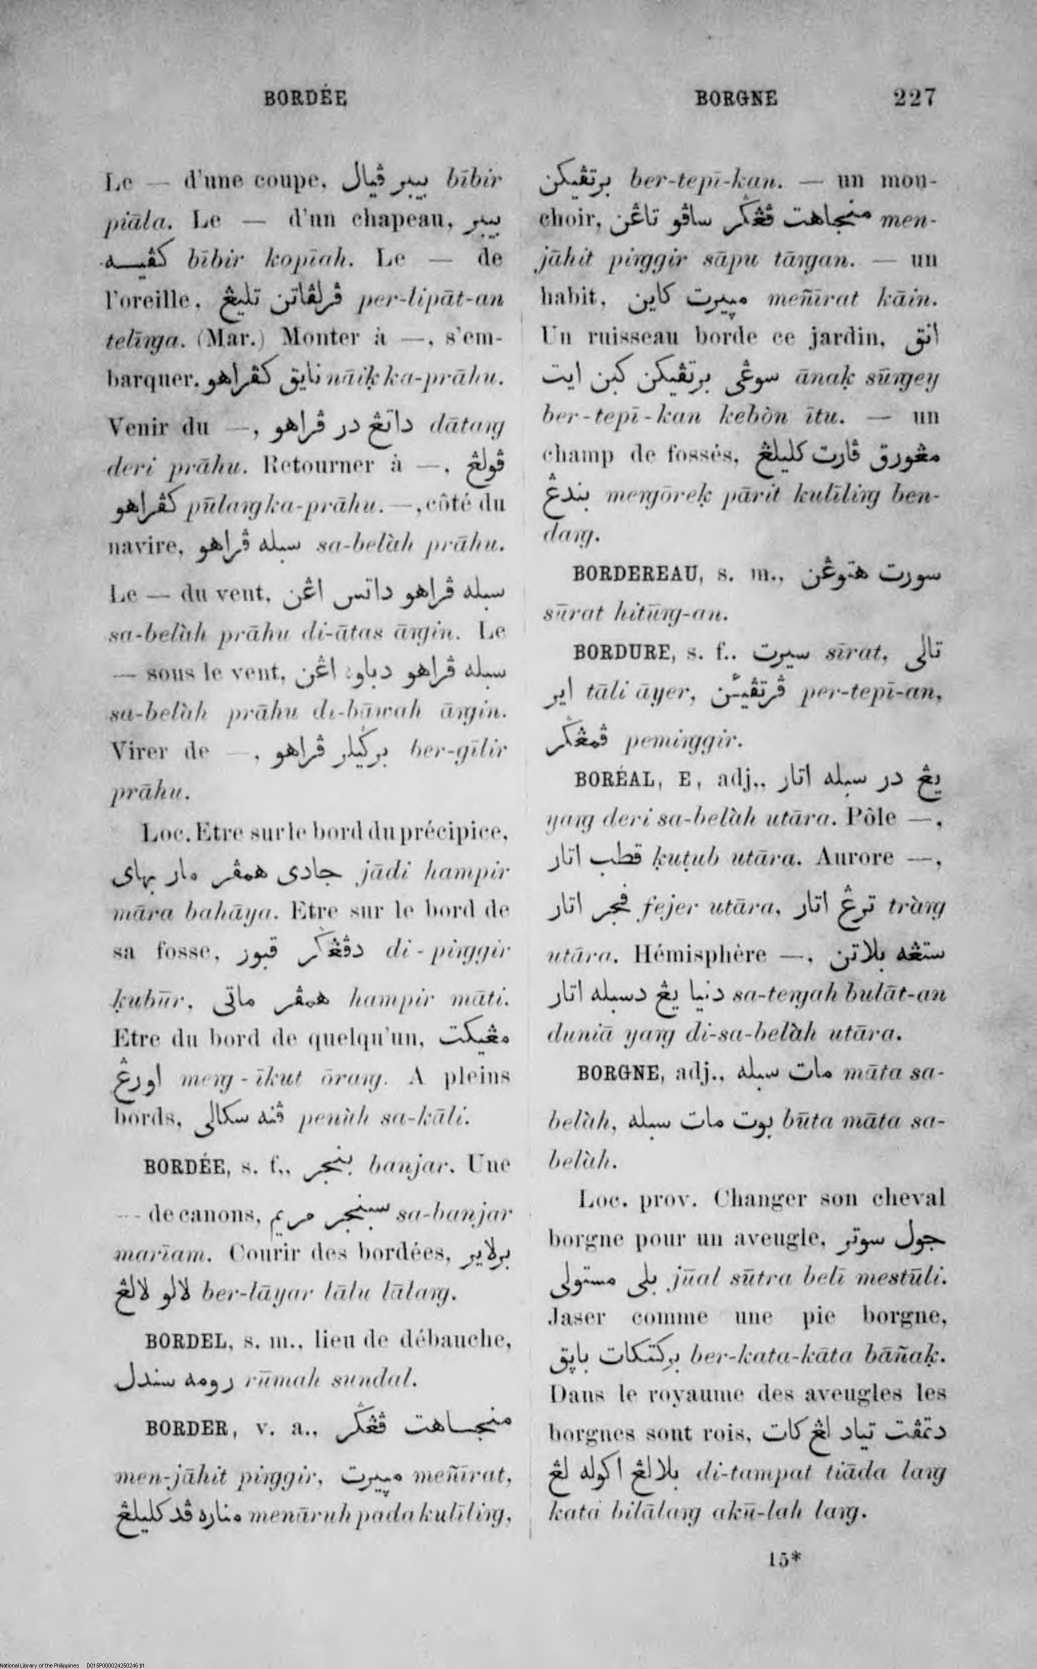 BORDÉE
BORGNE 227
Le — d'une coupe, بيبر ڤيال bībir
piāla. Le — d'un chapeau, بيبر
كڤيـــه bībir kopīah. Le — de
l'oreille, ڤرلڤاتن تليڠ per-lipāt-an
telīnga. (Mar.) Monter à —, s'em-
barquer, نايق كڤراهو nāiḳ ka-prāhu.
Venir du —, داتڠ در ڤراهو dātang
deri prāhu. Retourner à —, ڤولڠ
كڤراهو pūlang ka-prāhu. —, côté du
navire, سبله ڤراهو sa-belàh prāhu.
Le — du vent, سبله ڤراهو داتس اڠن
sa-belàh prāhu di-ātas āngin. Le
— sous le vent, سبله ڤراهو دباوه اڠن
sa-belàh prāhu di-bāwah āngin.
Virer de —, برݢيلر ڤراهو ber-gīlir
prāhu.
Loc. Etre sur le bord du précipice,
جادى همڤر مار بهاى jādi hampir
māra bahāya. Etre sur le bord de
sa fosse, دڤڠݢر قبور di-pinggir
ḳubūr, همڤر ماتى hampir māti.
Etre du bord de quelqu'un, مڠيكت
اورڠ meng-īkut ōrang. A pleins
bords, ڤنه سكالى penùh sa-kāli.
BORDÉE, s. f., بنجر banjar. Une
— de canons, سبنجر مريم sa-banjar
marīam. Courir des bordées, برلاير
لالو لالڠ ber-lāyar lālu lālang.
BORDEL, s. m., lieu de débauche,
رومه سندل rūmah sundal.
BORDER, v. a., منجـــاهت ڤڠݢر
men-jāhit pinggir, مڽيرت meñīrat,
مناره ڤد كليلڠ menāruh pada kulīling,
برتڤيكن ber-tepī-kan. — un mou-
choir, منجاهت ڤڠݢر ساڤو تاڠن men-
jāhit pinggir sāpu tāngan. — un
habit, مڽيرت كاين meñīrat kāin.
Un ruisseau borde ce jardin, انق
سوڠى برتڤيكن كبن ايت ānaḳ sūngey
ber-tepī-kan kebòn ītu. — un
champ de fossés, مڠورق ڤارت كليلڠ
بندڠ mengōreḳ pārit kulīling ben-
dang.
BORDEREAU, s. m., سورت هتوڠن
sūrat hitūng-an.
BORDURE, s. f., سيرت sīrat, تالى
اير tāli āyer, ڤرتڤيئن per-tepī-an,
ڤمڠݢر peminggir.
BORÉAL, E, adj., يڠ در سبله اتار
yang deri sa-belàh utāra. Pôle —,
قطب اتار ḳuṭub utāra. Aurore —,
فجر اتار fejer utāra, ترڠ اتار tràng
utāra. Hémisphère —, ستڠه بلاتن
دنيا يڠ دسبله اتار sa-tengah bulāt-an
duniā yang di-sa-belàh utāra.
BORGNE, adj., مات سبله māta sa-
belàh, بوت مات سبله būta māta sa-
belàh.
Loc. prov. Changer son cheval
borgne pour un aveugle, جول سوتر
بلى مستولى jūal sūtra belī mestūli.
Jaser comme une pie borgne,
بركتكات باڽق ber-kata-kāta bāñaḳ.
Dans le royaume des aveugles les
borgnes sont rois, دتمڤت تياد لڠ كات
بلالڠ اكوله لڠ di-tampat tiāda lang
kata bilālang akū-lah lang.
15*
National Library of the Philippines